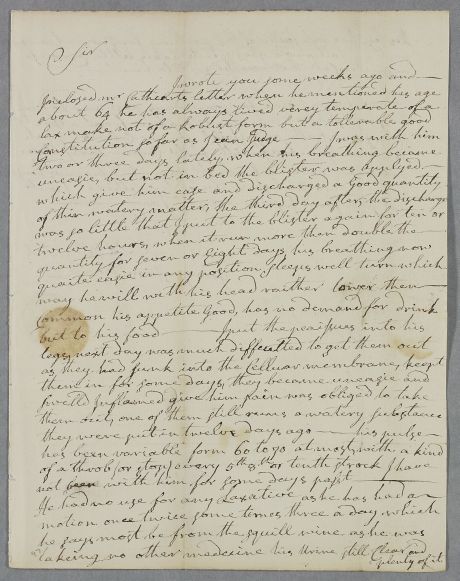 Sir
I wrote you some weeks ago and
Inclosed mr Cathcarts letter when he mentioned his age
about 64 he has always lived verey temperate of a
lax make not of a Robust form but a tollerable good
Constitution so far as I can Judge I was with him
two or three days lately, when his breathing became
uneasie, but not in bed the blister was applyed
which give him ease and discharged a Good quantity
of thin watery matter, the third day after, the discharge
was so little that I put to the blister again for ten or
twelve hours, when it run more then double the
quantity for seven or Eight days his breathing now
quaite easie in any position, sleeps well turn which
way he will with his head raither lower then
Common his appetite Good, has no demand for drink
but to his food I put the peaissues into his
legs next day was much difficulted to get them out
as they had sunk into the Celluar membrane, keept
them in for some days, they became uneasie and
swelld Inflamed give him pain was obliged to take
them out, one of them still runs a watery substance
they were put in twelve days ago his pulse
has been variable form 60 to 70 at most, with a kind
of a throb or stop every 5th 8th or tenth strock I have
not been with him for some days past
He had no use for any Laxative as he has had a
motion once twice some times three a day, which
he says most be from the squill wine as he was
taking no other medecine his Urine still Clear and
plenty of it